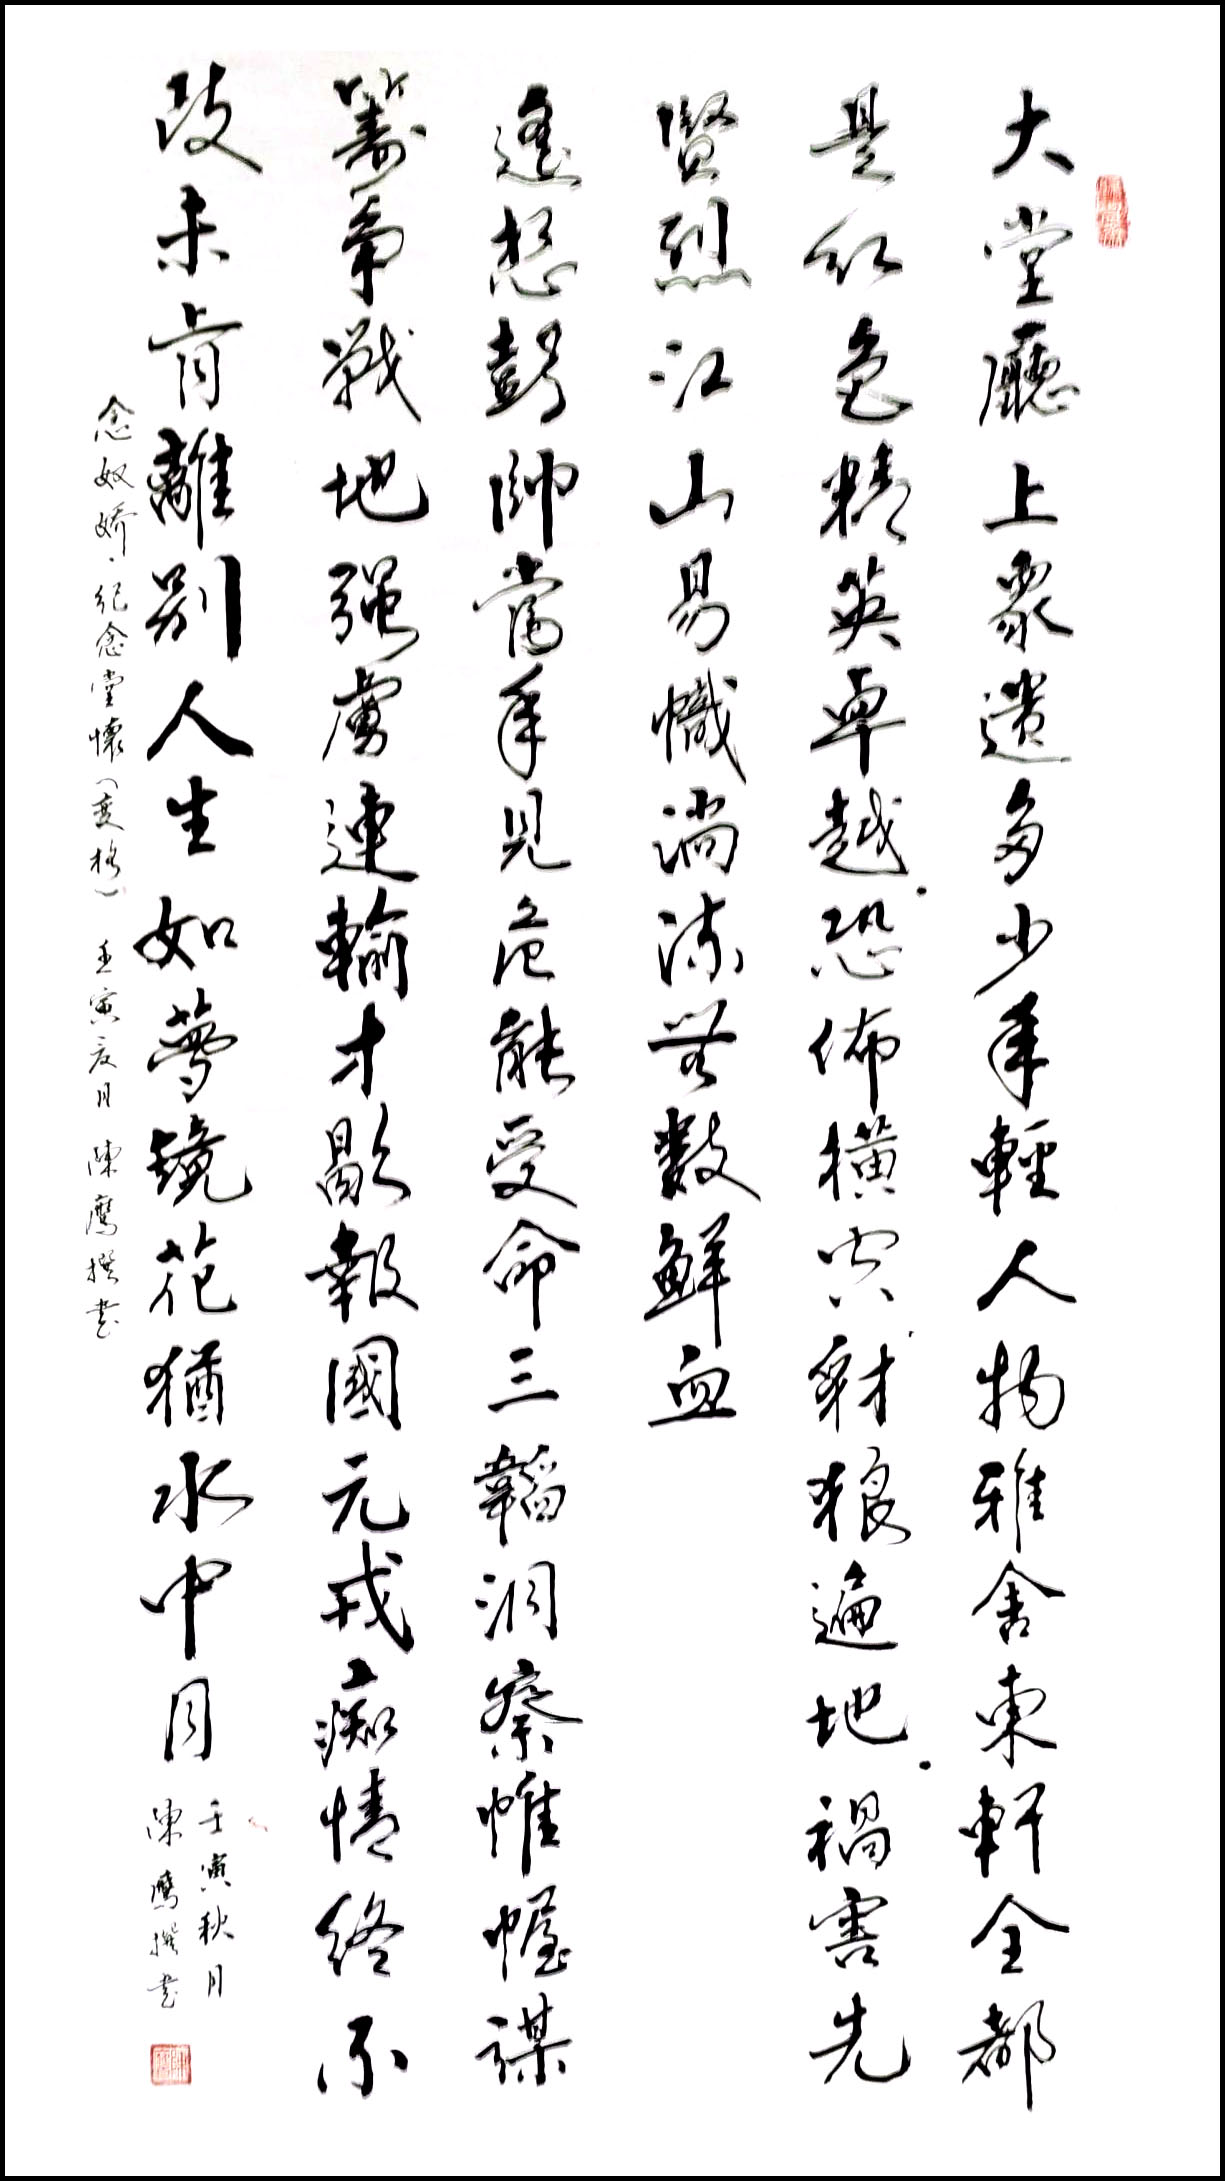 大堂廳上眾遺多少年輕人物雅舍東軒全都
是紅色精英卓越恐佈橫突豺狼遍地禍害先
賢烈江山易幟淌流無數鮮血
遙想彭帥當年見危能受命三韜洞察帷幄謀
籌爭戰地強虜連輸才歇報國元戎痴情終不
改未肯離別人生如夢鏡花猶水中月
壬寅秋月
陳鷹撰書
念奴嬌·紀念堂懷(变格) 壬寅亥月 陳鷹撰書